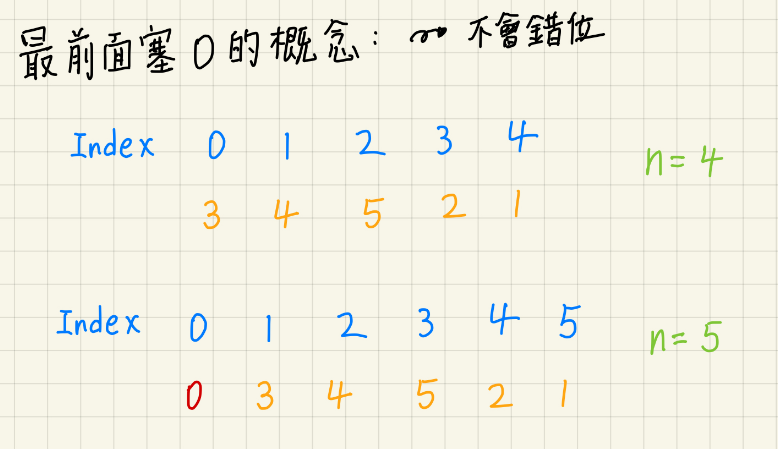 最前面塞0的概念: 不會錯位
Index 0 1 2 3 4
n=4
3 4 5 2 1
Index 0 1 2 3 4 5
n=5
0 3 4 5 2 1